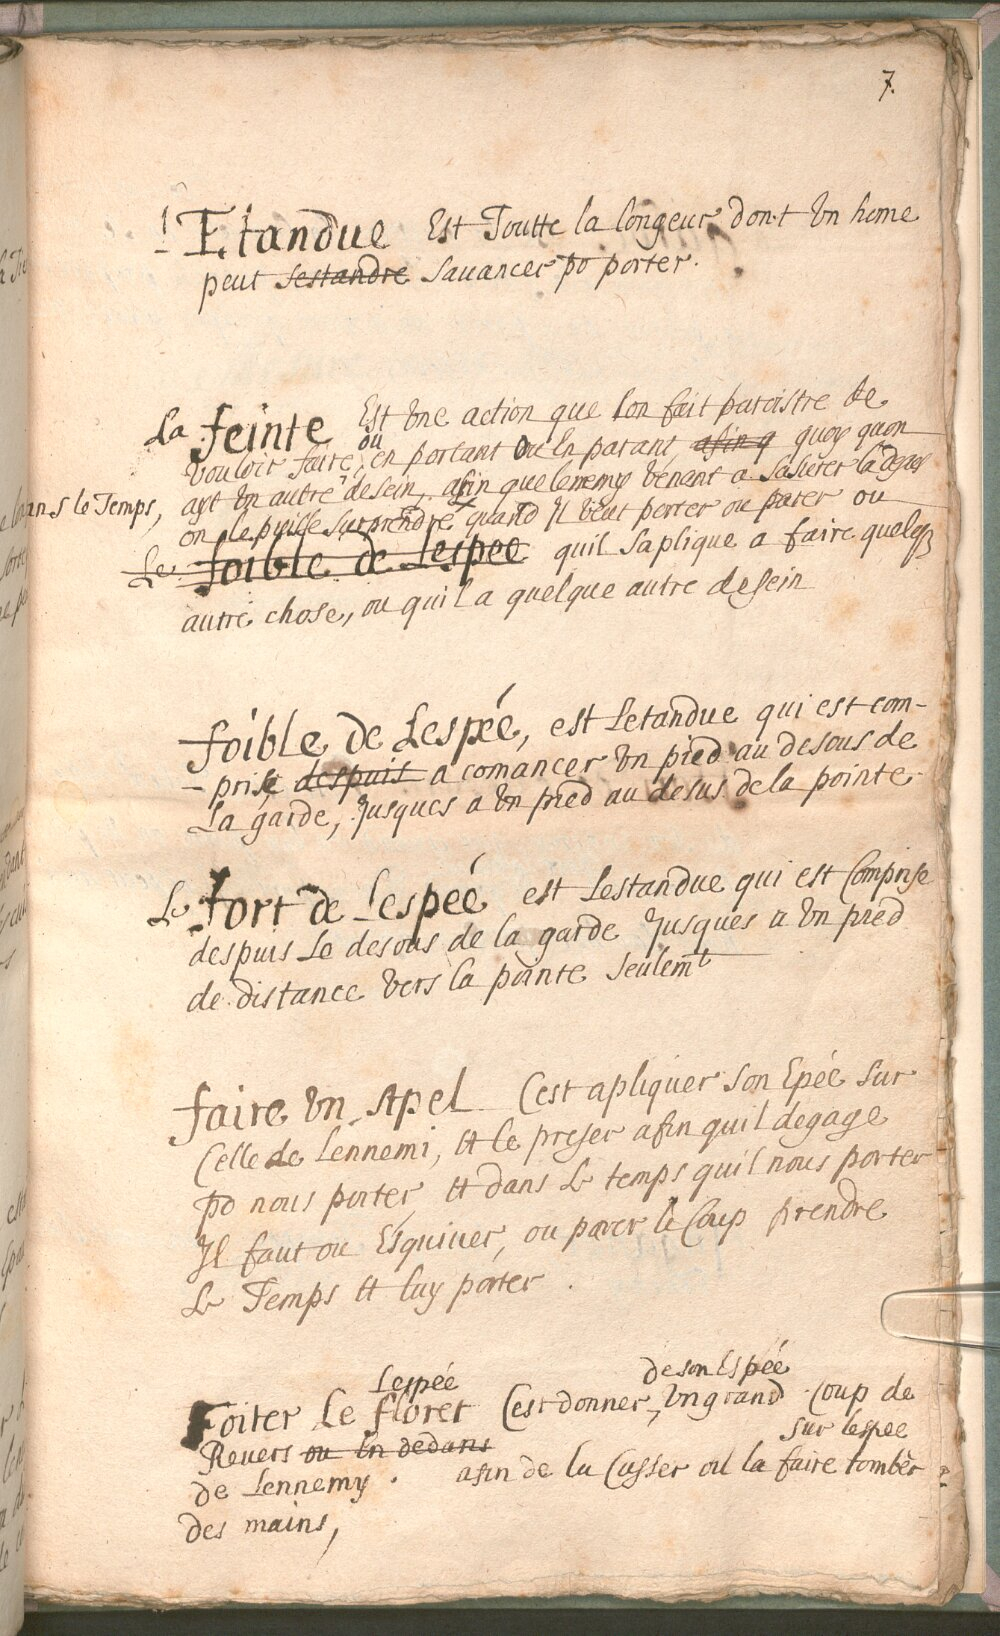 7.
l' Etandue Est Toutte la longeur dont Un home
peut sestandre sauancer po porter.
La feinte Est Une action que lon fait paroistre de
vouloir faire, ou en portant ou En parant, afin q quoy quon
ayt Un autre desein, afin que lenemy venent a sasurer la
ans le Temps, on le puisse surprendre quand Il veut porter ou parer ou
Le foible de Lespee quil saplique a faire quelq
autre chose, ou quil a quelque autre desein
foible de Lespée, est Letandue qui est com-
- prise despuis a comancer Un pied au desous de
La garde, Jusques a Un pied au desus de la pointe
Le fort de Lespeé est Lestandue qui est Comprise
despuis Le desous de la garde Jusques a Un pied
de distance vers la pointe seulemt
faire Un Apel Cest apliquer son Epée sur
Celle de Lennemi, Et le preser afin quil degage
po nous porter, Et dans Le temps quil nous porter
Il faut ou Esquiuer, ou parer le Coup prendre
Le Temps Et luy porter.
Lespée de son Espée
Foiter Le floret Cest donner, Un grand coup de
Reuers ou En dedans sur lespee
de Lennemy. afin de la Casser ou la faire tombèr
des mains,